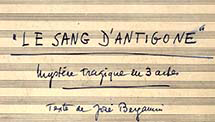 "LE SANG D'ANTIGONE"
Mystère tragique en 3 actes
Texte de José Bergamin